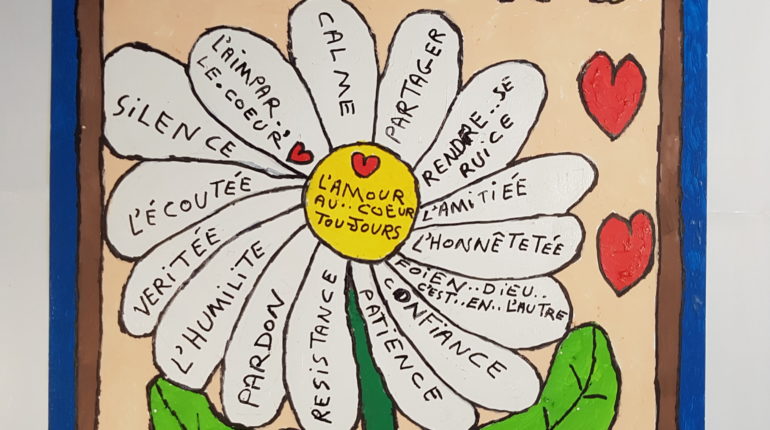 L'AMOUR
AU.. COEUR
TOUJOURS
SILENCE
L'AIMPAR..
LE.COEUR'
CALME
PARTAGER
RENDRE..SE
RUICE
L'AMITIÉE
L'HONNÊTETÉE
FOIEN..DIEU..
C'EST..EN..L'AUTRE
CONFIANCE
PATIENCE
RESISTANCE
PARDON
L'HUMILITE
VERITÉE
L'ÉCOUTÉE